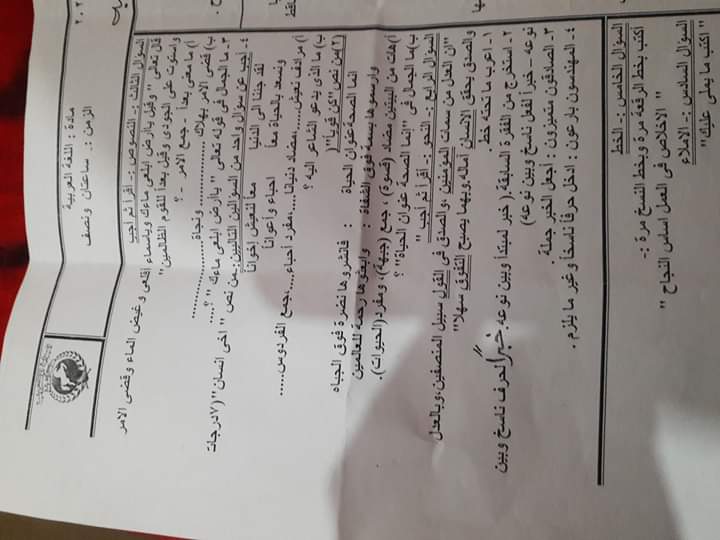 مادة : اللغة العربية
الزمن :ـ ساعتان ونصف
السؤال الثالث :ـ النصوص :ـ اقرأ ثم أجب
قال تعالى "وقيل ياأرض ابلعى ماءك وياسماء أقلعى وغيض الماء وقضى الامر
واستوت على الجودى وقيل بعداً للقوم الظالمين"
أ) ما معنى بعداً - جمع الامر - ؟
ب) قضى الامر بهلاك ............ونجاة............
٣- ما الجمال فى قوله تعالى " ياأرض ابلعى ماءك " ؟
٤- أجب عن سؤال واحد من السؤالين التاليين :ـ من نص " اخى انسان " (٧درجات
لقد جئنا الى الدنيا معاً لنعيش إخواناً
ونسعد بالحياة معاً احباء وأعواناً
أ) مرادف نعيش.....،مضاد دنيانا.....،مفرد احباء.....،جمع الفردوس.....
ب) ما الذى يدعو الشاعر اليه ؟
(٢)من نص"كن قوياً"(
إنما الصحة عنوان الحياة : فانشروها نضرة فوق الجباه
وارسموها بسمة فوق الشفاة : وابعثوها رحمة للعالمين
أ)هات من البيتين مضاد (قسوة) ، جمع (جبهة)، ومفرد(الحيوات).
ب)ما الجمال فى "إنما الصحة عنوان الحياة" ؟
السؤال الرابع :ـ النحو :ـ اقرأ ثم أجب "
"ان العدل من سمات المؤمنين ،والصدق فى القول سبيل المنصفين،وبالعدل
والصدق يحقق الانسان أماله،وبهما يصبح التفوق سهلا"
١- اعرب ما تحته خط
٢- استخرج من الفقرة السابقة.(خبر لمبتدأ وبين نوعه. خبرًا لحرف ناسخ وبين
نوعه - خبراً لفعل ناسخ وبين نوعه)
٣- الصادقون متميزون : أجعل الخبر جملة.
٤- المهندسون بارعون : ادخل حرفاً ناسخاً وغير ما يلزم.
السؤال الخامس :ـ الخط
أكتب بخط الرقعة مرة وبخط النسخ مرة :ـ
" الاخلاص فى العمل أساس النجاح "
السؤال السادس :ـ الاملاء
" اكتب ما يملى عليك"